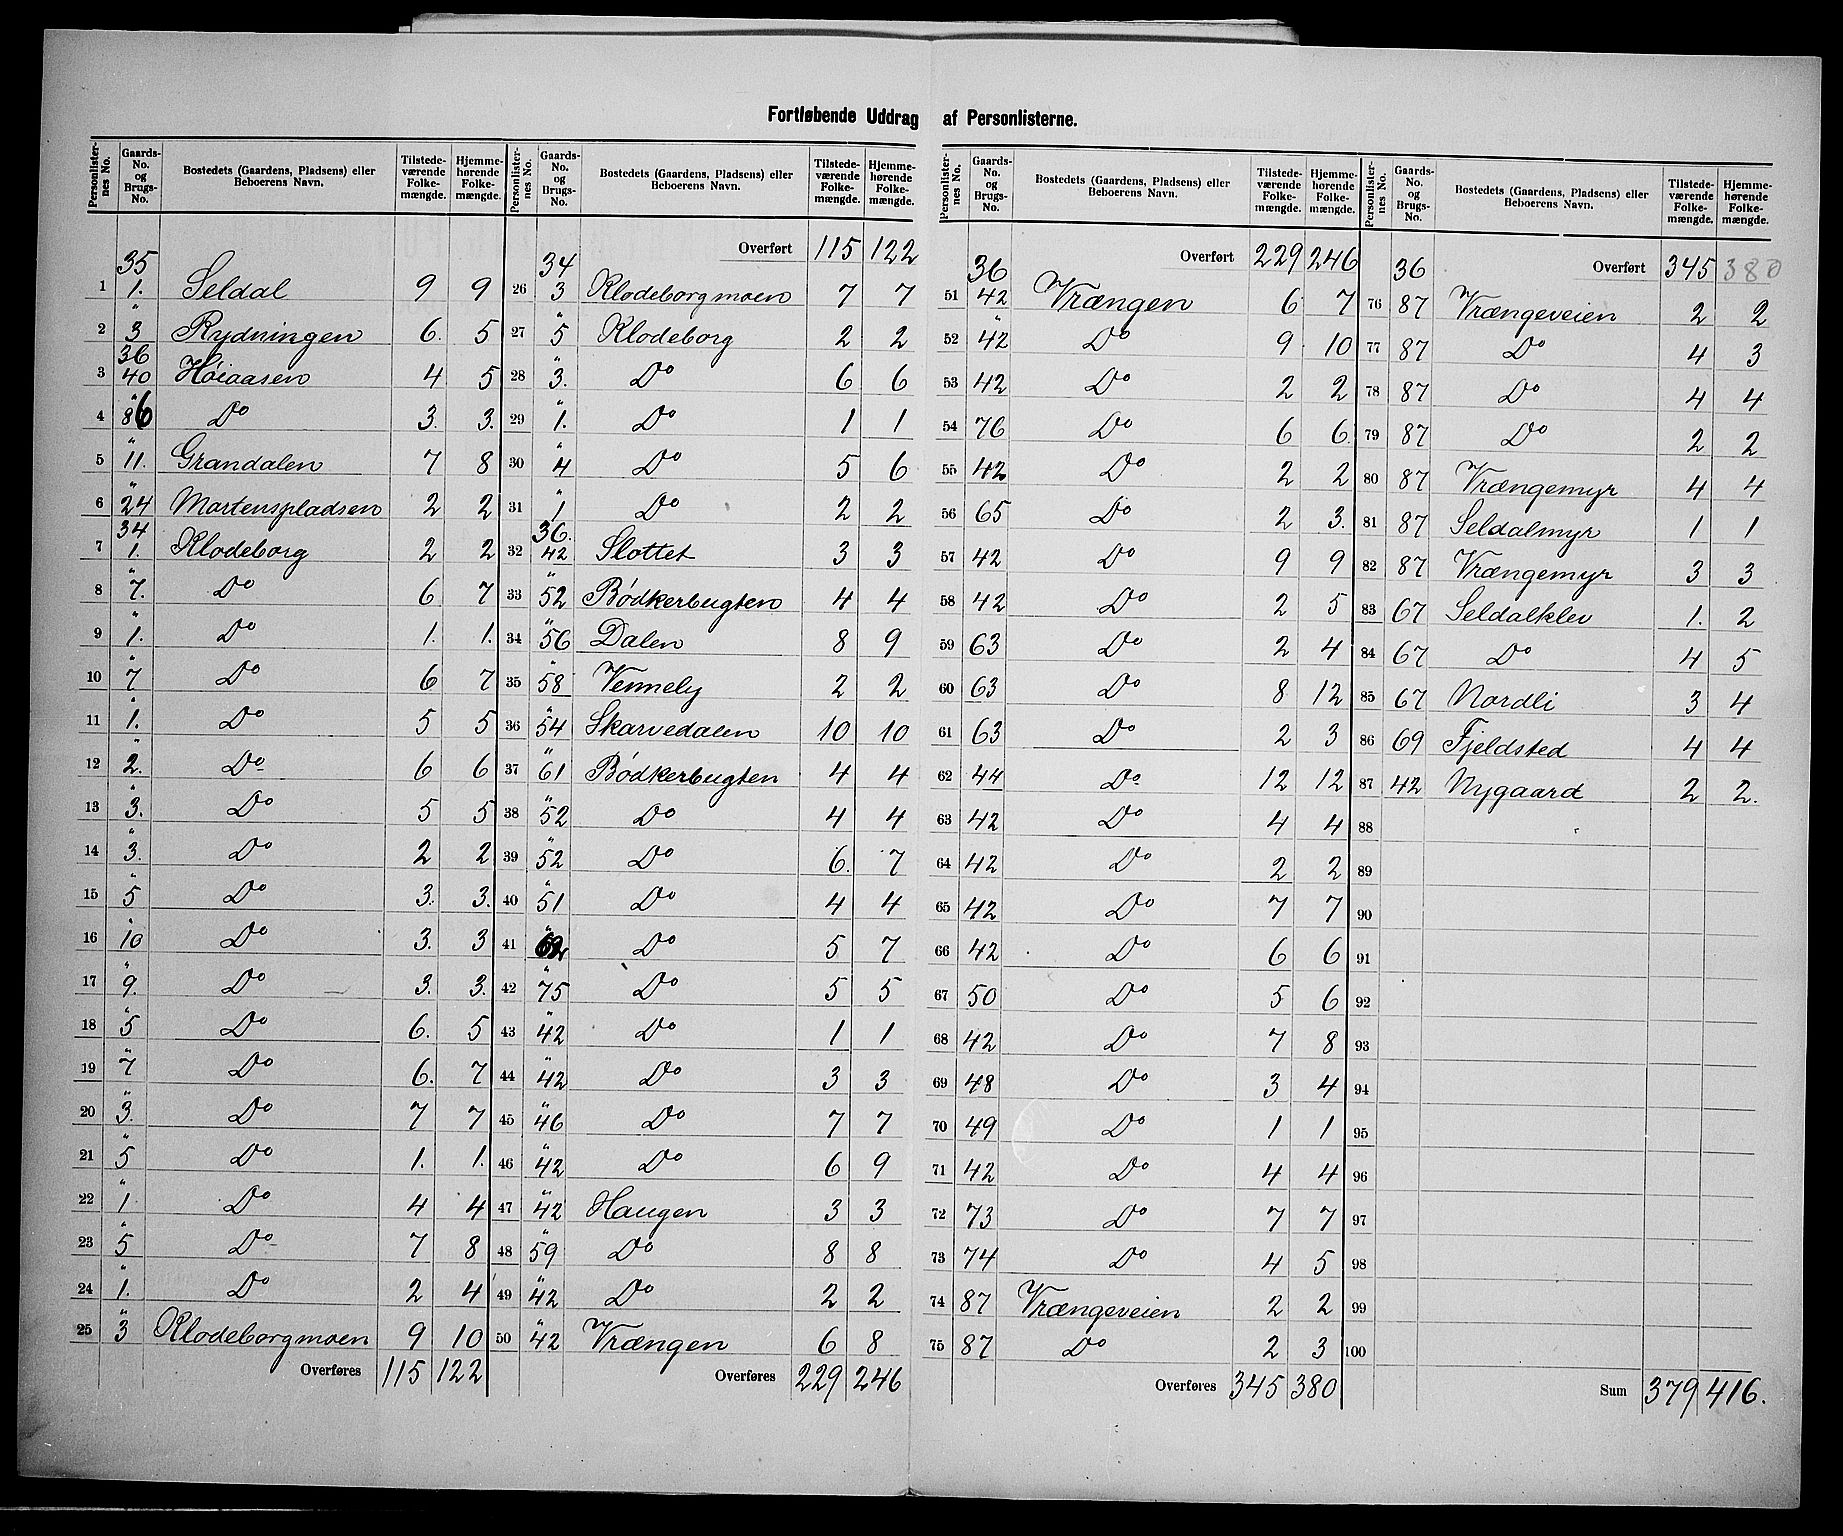 Fortløbende Uddrag af Personlisterne.
Personlisternes No. | Gaards-No. og Brugs-No. | Bostedets (Gaardens, Pladsens) eller Beboerens Navn. | Tilstedeværende Folkemængde. | Hjemmehørende Folkemængde.
1 | 35 1. | Seldal | 9 | 9
2 | " 3 | Rydningen | 6. | 5
3 | 36 40 | Høiaasen | 4 | 5
4 | " 86 | Do | 3. | 3.
5 | " 11. | Grandalen | 7 | 8
6 | " 24 | Martenspladsen | 2 | 2
7 | 34 1. | Klodeborg | 2 | 2
8 | " 7. | Do | 6. | 7
9 | " 1. | Do | 1. | 1.
10 | " 7 | Do | 6 | 7
11 | " 1. | Do | 5 | 5
12 | " 2. | Do | 6 | 6
13 | " 3. | Do | 5 | 5
14 | " 3. | Do | 2 | 2
15 | " 5 | Do | 3. | 3.
16 | " 10 | Do | 3. | 3
17 | " 9. | Do | 3. | 3.
18 | " 5 | Do | 6. | 5
19 | " 7 | Do | 6. | 7
20 | " 3. | Do | 7 | 7
21 | " 5 | Do | 1. | 1.
22 | " 1. | Do | 4 | 4
23 | " 5 | Do | 7 | 8
24 | " 1. | Do | 2 | 4
25 | " 3 | Klodeborgmoen | 9 | 10
Overføres | 115 | 122
Personlisternes No. | Gaards-No. og Brugs-No. | Bostedets (Gaardens, Pladsens) eller Beboerens Navn. | Tilstedeværende Folkemængde. | Hjemmehørende Folkemængde.
Overført | 115 | 122
26 | 34 3 | Klodeborgmoen | 7 | 7
27 | " 5 | Klodeborg | 2 | 2
28 | " 3. | Do | 6 | 6
29 | " 1. | Do | 1 | 1
30 | " 4 | Do | 5 | 6
31 | " 1 | Do | 2 | 2
32 | 36. 42 | Slottet | 3 | 3
33 | " 52 | Bødkerbugten | 4 | 4
34 | " 56 | Dalen | 8 | 9
35 | " 58 | Venneby | 2 | 2
36 | " 54 | Skarvedalen | 10 | 10
37 | " 61 | Bødkerbugten | 4 | 4
38 | " 52 | Do | 4 | 4
39 | " 52 | Do | 6. | 7
40 | " 51 | Do | 4 | 4
41 | " | Do | 5 | 7
42 | " 75 | Do | 5 | 5
43 | " 42 | Do | 1 | 1
44 | " 42 | Do | 3 | 3
45 | " 46 | Do | 7 | 7
46 | " 42 | Do | 6 | 9
47 | " 42 | Haugen | 3 | 3
48 | " 59 | Do | 8 | 8
49 | " 42 | Do | 2 | 2
50 | " 42 | Vrængen | 6 | 8
Overføres | 229 | 246
Personlisternes No. | Gaards-No. og Brugs-No. | Bostedets (Gaardens, Pladsens) eller Beboerens Navn. | Tilstedeværende Folkemængde. | Hjemmehørende Folkemængde.
Overført | 229 | 246
51 | 36 42 | Vrængen | 6 | 7
52 | " 42 | Do | 9 | 10
53 | 42 | Do | 2 | 2
54 | 76 | Do | 6 | 6
55 | 42 | Do | 2 | 2
56 | 65 | Do | 2 | 3.
57 | 42 | Do | 9 | 9
58 | 42 | Do | 2 | 5
59 | 63 | Do | 2 | 4
60 | 63 | Do | 8 | 12
61 | 63 | Do | 2 | 3
62 | 44 | Do | 12 | 12
63 | 42 | Do | 4 | 4
64 | 42 | Do | 2 | 2
65 | 42 | Do | 7 | 7
66 | 42 | Do | 6 | 6
67 | 50 | Do | 5 | 6
68 | 42 | Do | 7 | 8
69 | 48 | Do | 3 | 4
70 | 49 | Do | 1 | 1
71 | 42 | Do | 4 | 4
72 | 73 | Do | 7 | 7
73 | 74 | Do | 4 | 5
74 | 87 | Vrængeveien | 2 | 2
75 | 87 | Do | 2 | 3
Overføres | 345 | 380
Personlisternes No. | Gaards-No. og Brugs-No. | Bostedets (Gaardens, Pladsens) eller Beboerens Navn. | Tilstedeværende Folkemængde. | Hjemmehørende Folkemængde.
Overført | 345 | 380
76 | 36 87 | Vrængeveien | 2 | 2
77 | 87 | Do | 4 | 3
78 | 87 | Do | 4 | 4
79 | 87 | Do | 2 | 2
80 | 87 | Vrængemyr | 4 | 4
81 | 87 | Seldalmyr | 1 | 1
82 | 87 | Vrængemyr | 3 | 3
83 | 67 | Seldalklev | 1. | 2
84 | 67 | Do | 4 | 5
85 | 67 | Nordli | 3 | 4
86 | 69 | Fjeldsted | 4 | 4
87 | 42 | Nygaard | 2 | 2.
88
89
90
91
92
93
94
95
96
97
98
99
100
Sum | 379 | 416.